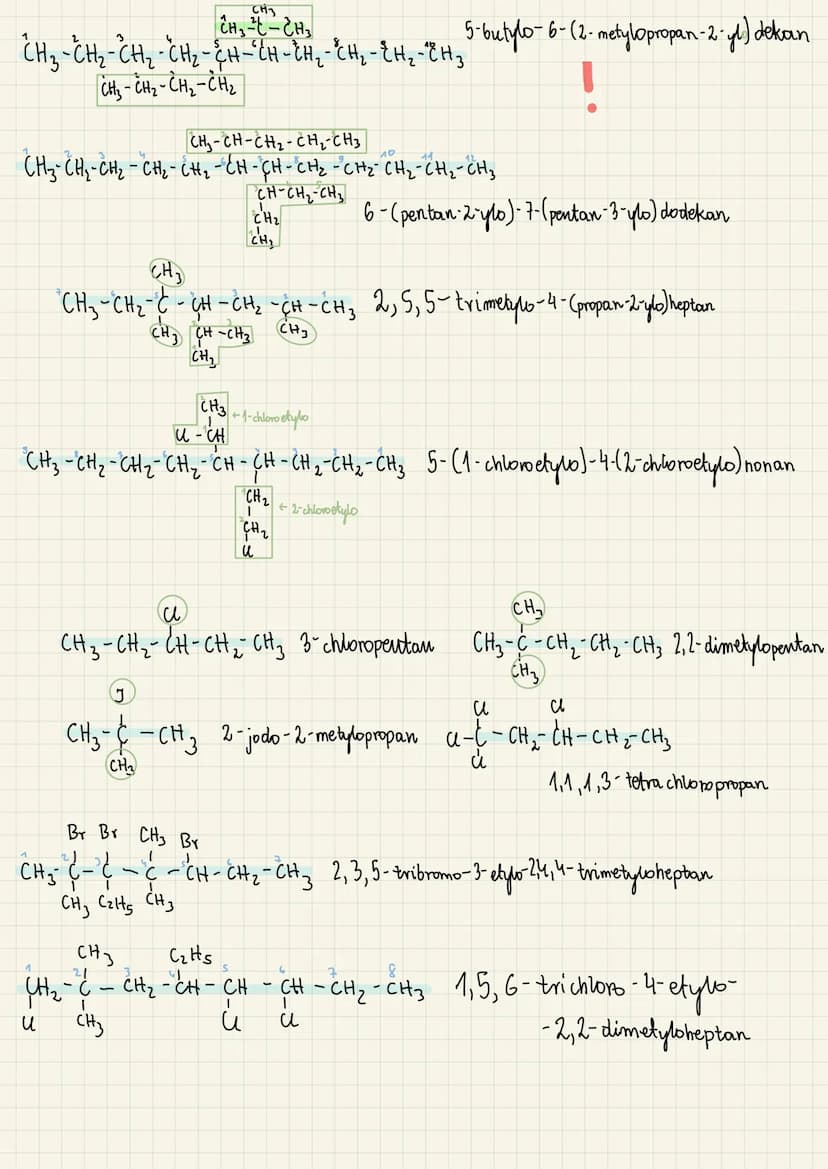 CH3
CH3-C-CH3
CH3-CH2-CH2-CH2-CH-CH-CH2-CH2-CH2-CH3 5-butylo-6-(2-metylopropan-2-yl) dekan
CH3-CH2-CH2-CH2
!
CH3-CH-CH2-CH2-CH3
CH3-CH2-CH2-CH2-CH2-CH-CH-CH2-CH2-CH2-CH2-CH3
CH-CH2-CH3
CH2
CH3
6-(pentan-2-ylo)-7-(pentan-3-ylo) dodekan
CH3
CH3-CH2-C-CH-CH2-CH-CH3 2,5,5-trimetylo-4-(propan-2-ylo)heptan
CH3 CH-CH3 CH3
CH3
CH3 ←1-chloroetylo
Cl-CH
CH3-CH2-CH2-CH2-CH-CH-CH2-CH2-CH3 5-(1-chloroetylo)-4-(2-chloroetylo)nonan
CH2
← 2-chloroetylo
CH2
Cl
Cl
CH3-CH2-CH-CH2-CH3 3-chloropentan
CH3
CH3-C-CH2-CH2-CH3 2,2-dimetylopentan
CH3
J
CH3-C-CH3 2-jodo-2-metylopropan
CH3
Cl Cl
Cl-C-CH2-CH-CH2-CH3
Cl
1,1,1,3-tetrachloropropan
Br Br CH3 Br
CH3-C-C-C-CH-CH2-CH3 2,3,5-tribromo-3-etylo-2,4,4-trimetyloheptan
CH3 C2H5 CH3
CH3 C2H5
CH2-C-CH2-CH-CH-CH-CH2-CH3 1,5,6-trichloro-4-etylo-
Cl CH3 Cl Cl
-2,2-dimetyloheptan